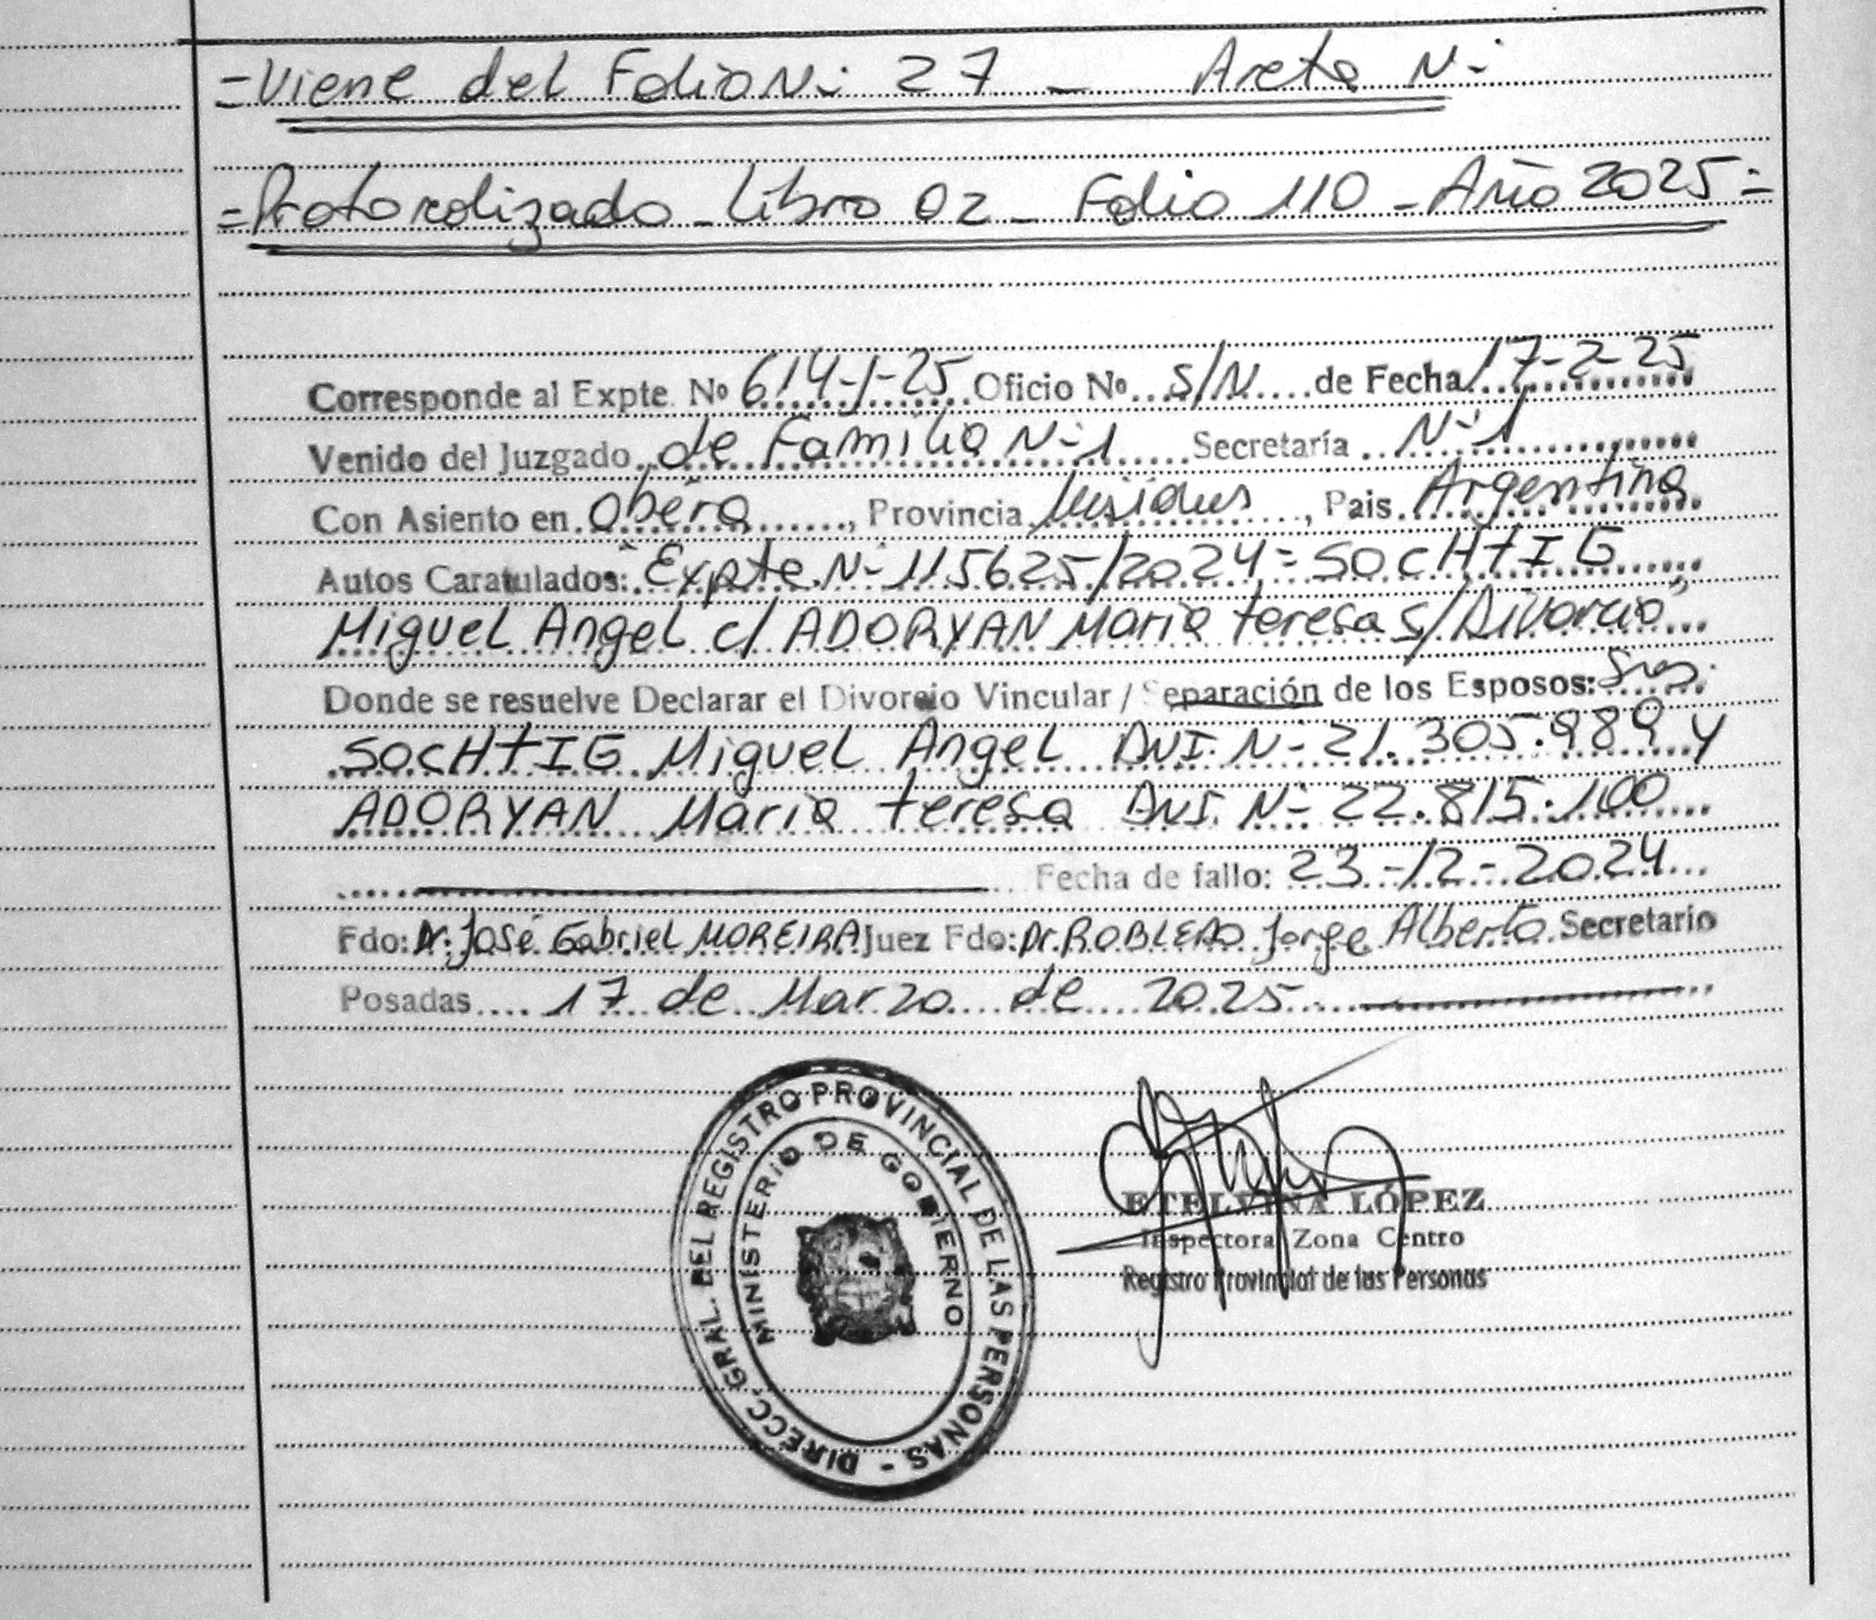 = Viene del Folio Nº 27 - Acta Nº
= Protocolizado - Libro 02 - Folio 110 - Año 2025 =
Corresponde al Expte. Nº 614-J-25 Oficio Nº S/N de Fecha 17-2-25
Venido del Juzgado de Familia Nº1 Secretaría Nº1
Con Asiento en Oberá, Provincia Misiones, Pais Argentina
Autos Caratulados: "Expte. Nº 115625/2024 = SOCHTIG
Miguel Angel c/ ADORYAN Maria teresa s/Divorcio"
Donde se resuelve Declarar el Divorcio Vincular / Separación de los Esposos: Sres.
SOCHTIG Miguel Angel DNI. Nº 21.305.989 y
ADORYAN Maria teresa DNI. Nº 22.815.100
Fecha de fallo: 23-12-2024
Fdo: Dr. José Gabriel MOREIRA Juez Fdo: Dr. ROBLEDO Jorge Alberto Secretario
Posadas 17 de Marzo de 2025
DIRECC. GRAL. DEL REGISTRO PROVINCIAL DE LAS PERSONAS -
MINISTERIO DE GOBIERNO
ETELVINA LÓPEZ
Inspectora Zona Centro
Registro Provincial de las Personas